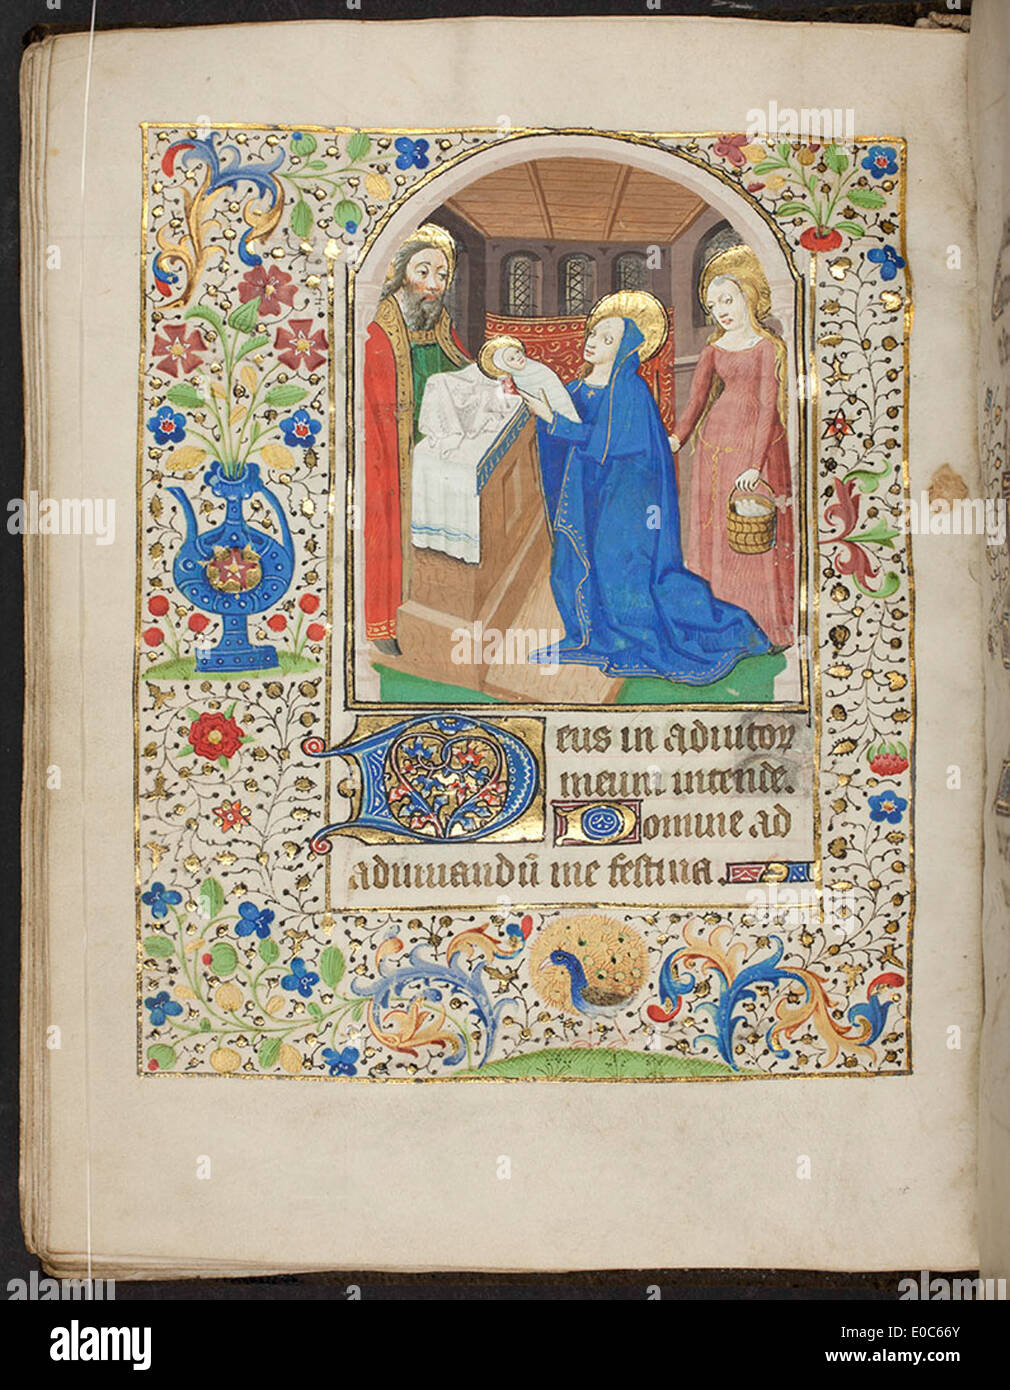 Deus in adiutor
meum intende.
Domine ad
adiuuandū me festina
alamy
Image ID: E0C66Y
www.alamy.com